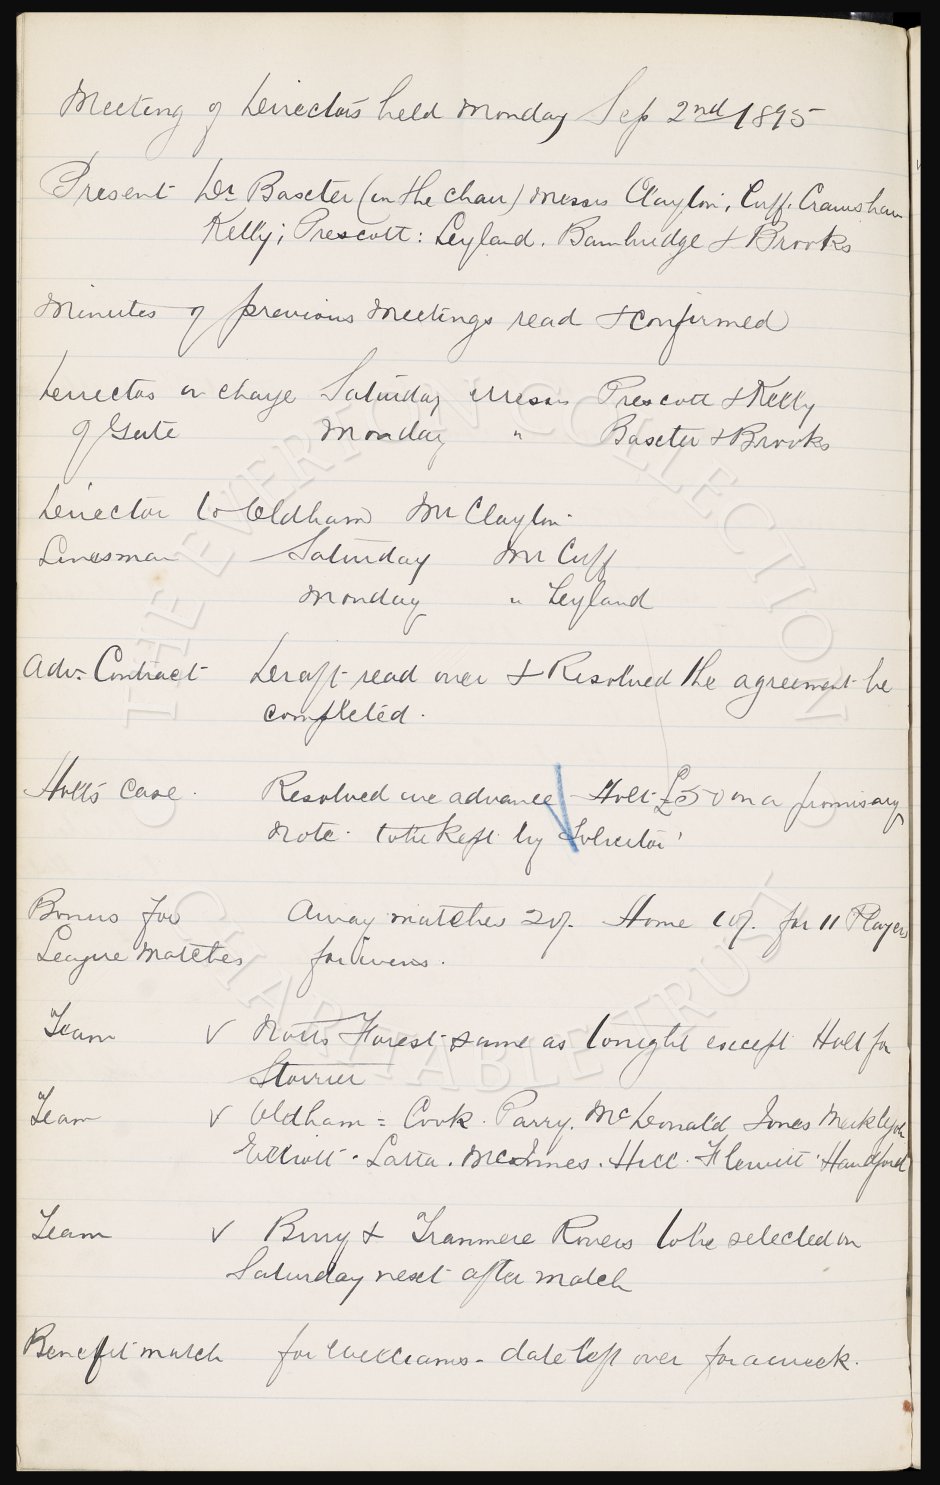 Meeting of Directors held Monday Sep 2nd 1895
Present Dr Baxter (in the chair) Messrs Clayton, Cuff, Crawshaw
Kelly; Prescott: Leyland. Bainbridge & Brooks
Minutes of previous Meetings read & confirmed
Directors in charge Saturday Messrs Prescott & Kelly
of Gate Monday " Baxter & Brooks
Director to Oldham Mr Clayton
Linesman Saturday Mr Cuff
Monday " Leyland
Adv. Contract Draft read over & Resolved the agreement be
completed.
Holt's Case. Resolved we advance Holt £50 on a promisary
Note. to be kept by Solicitor
Bonus for Away matches 20/. Home 10/. for 11 Players
League Matches for wins.
Team v Notts Forest same as tonight except Holt for
Storrier
Team v Oldham = Cook. Parry. McDonald Jones
Elliott. Latta. McInnes. Hill. Flewitt Handford
Team v Bury & Tranmere Rovers to be selected on
Saturday next after match
Benefit match for Williams - date left over for a week.
THE EVERTON COLLECTION
CHARITABLE TRUST